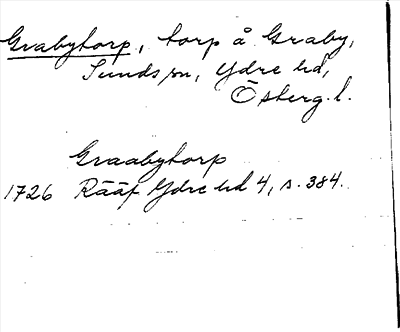 Grabytorp, torp å Graby,
Sunds sn, Ydre hd,
Österg. l.
Graabytorp
1726 Rääf Ydre hd 4, s. 384.